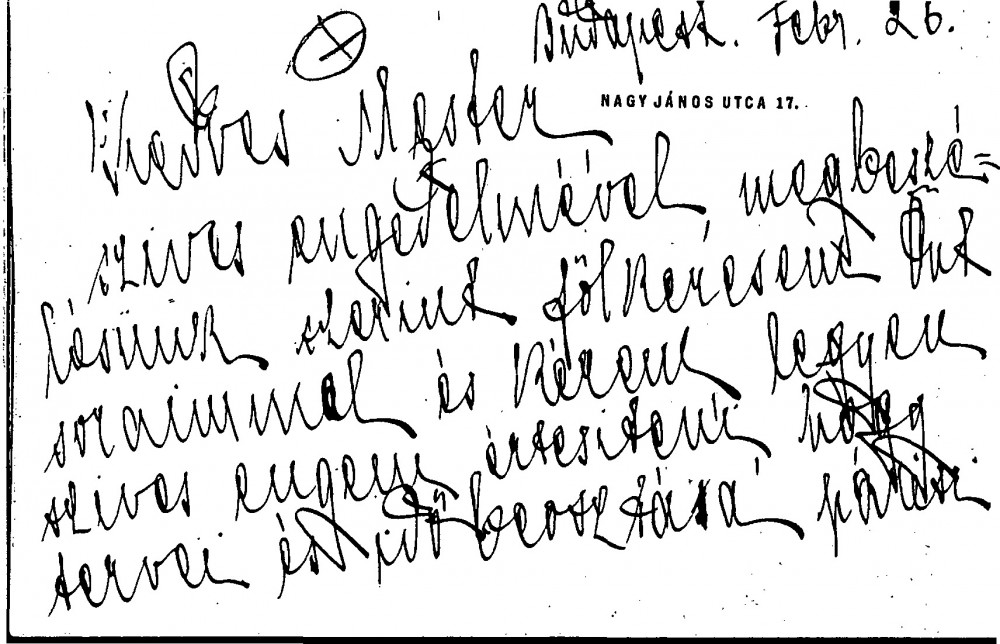 Budapest. Febr. 26.
NAGY JÁNOS UTCA 17.
Kedves Mester
szives engedelmével, megbeszé=
lésünk szerint fölkeresem Önt
soraimmal és kérem legyen
szives engem értesiteni hogy
tervei és időbeosztása párisi